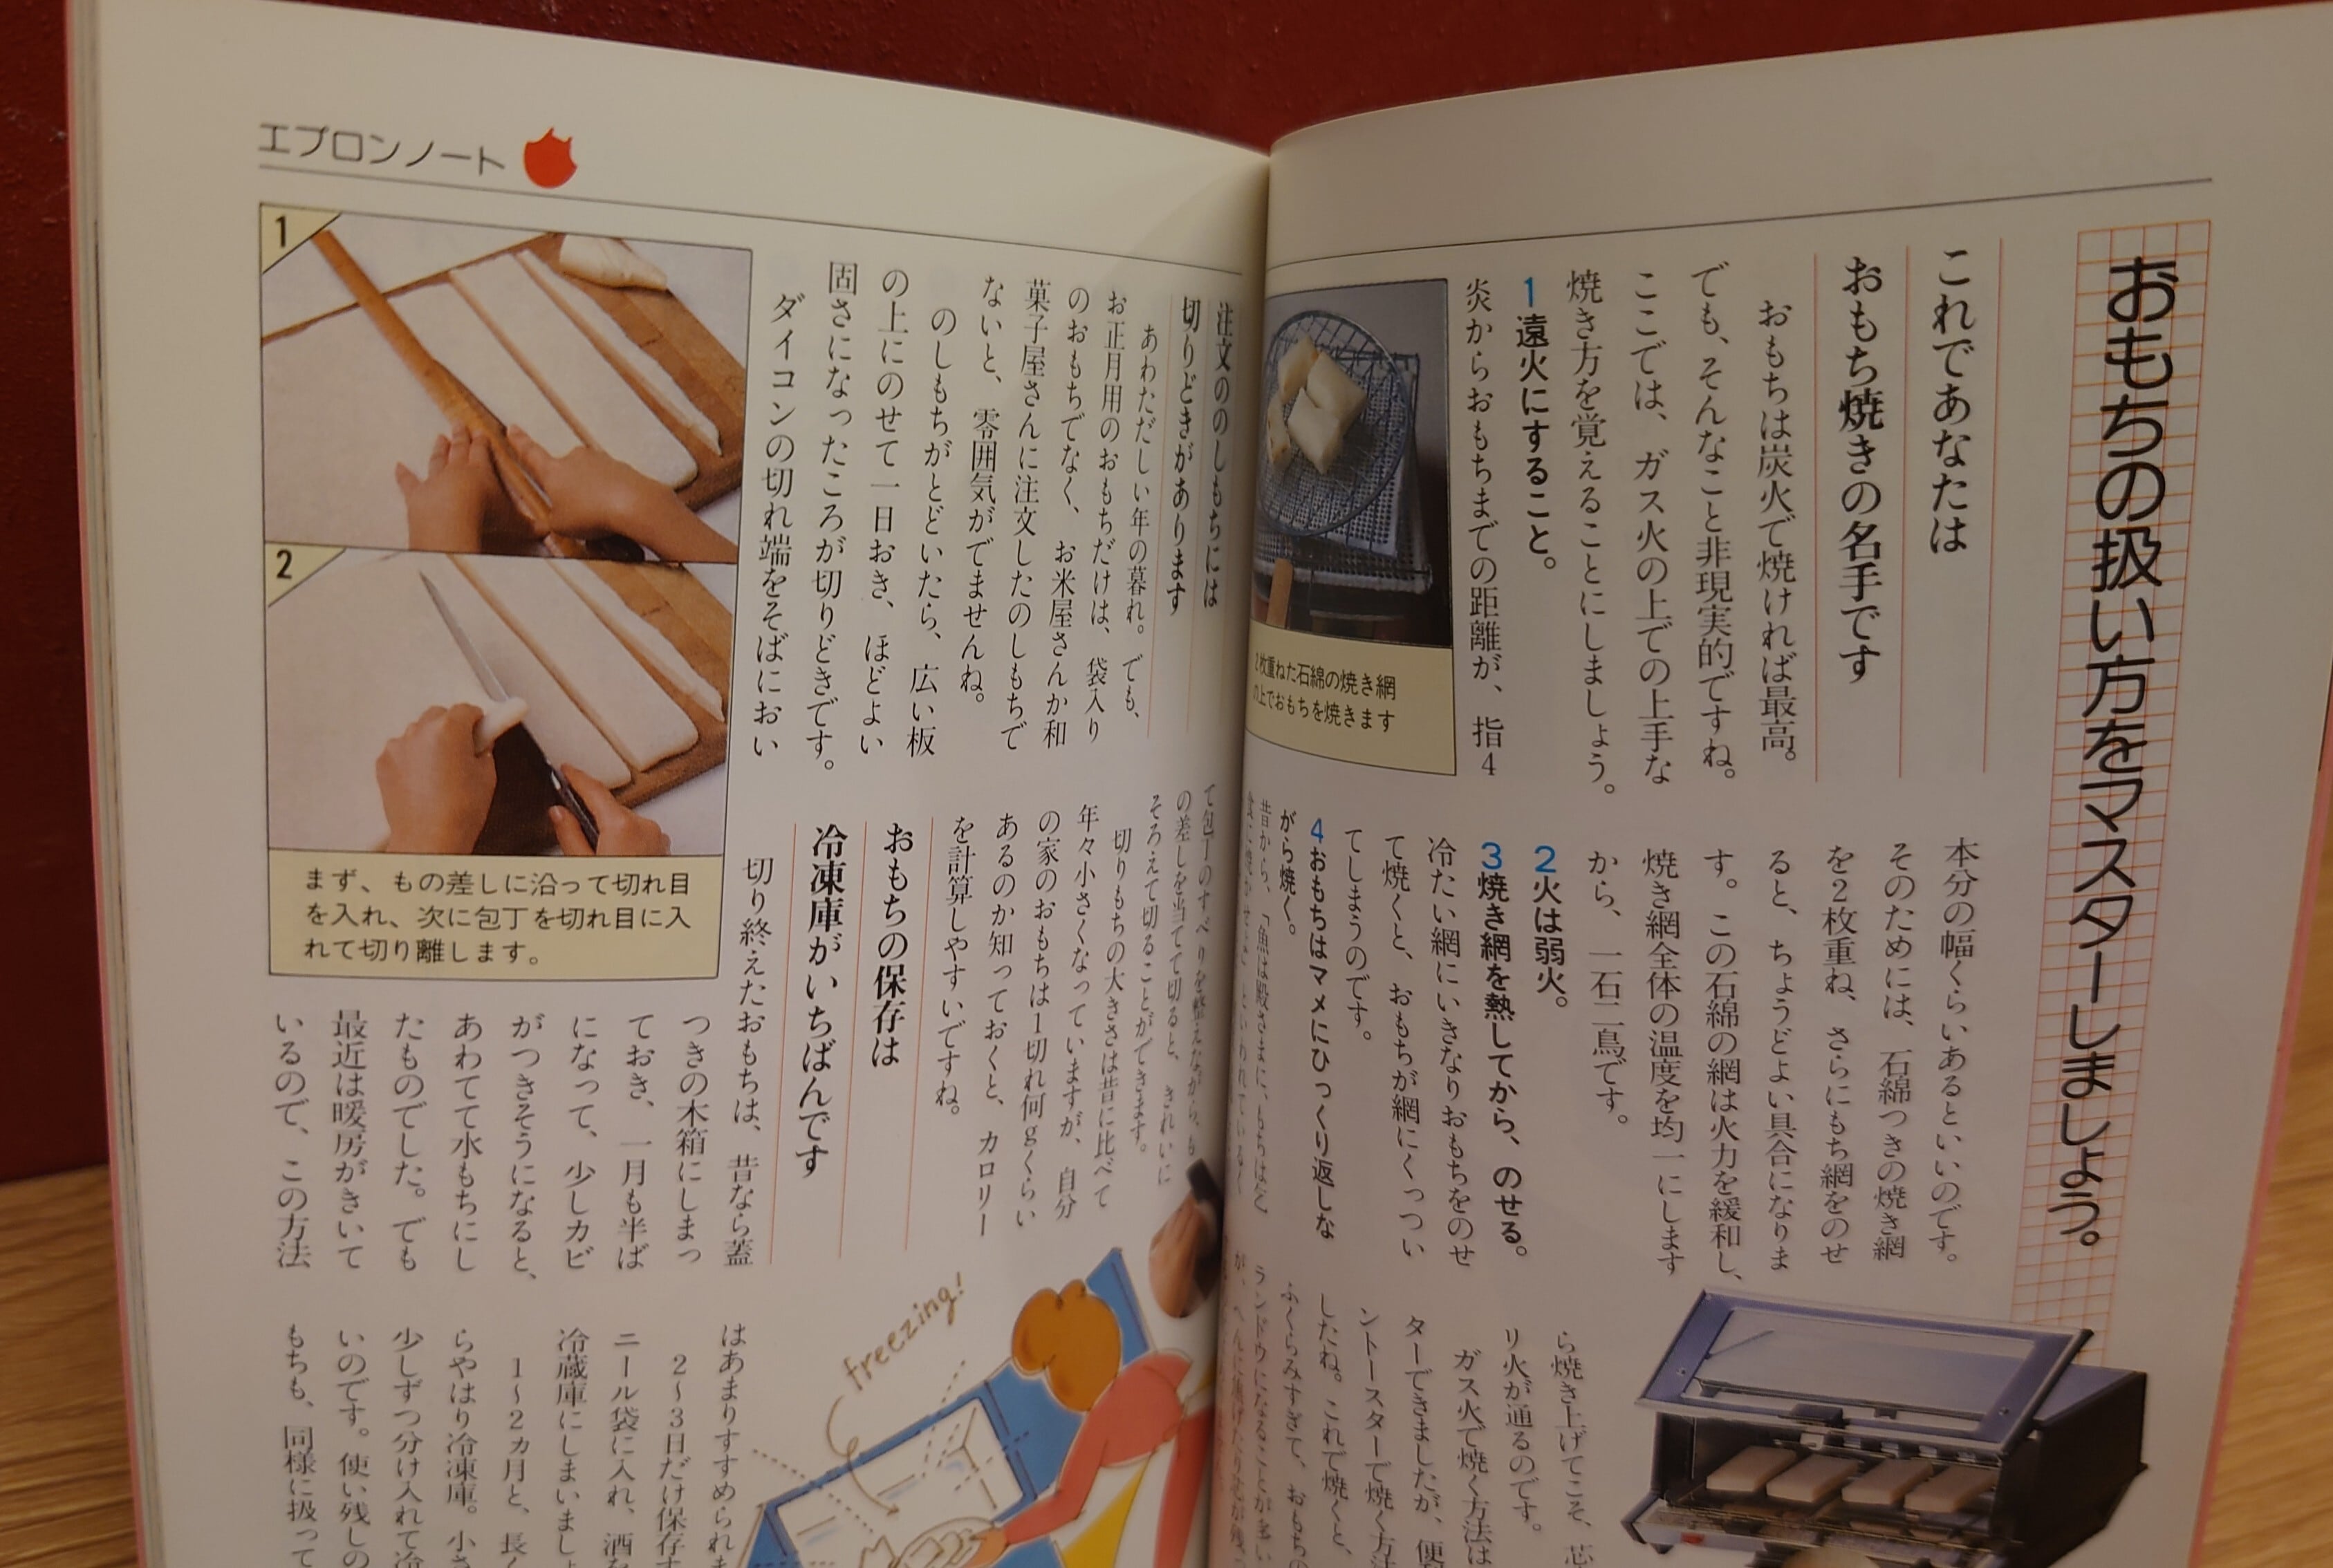 おもちの扱い方をマスターしましょう。
これであなたは
おもち焼きの名手です
おもちは炭火で焼ければ最高。
でも、そんなこと非現実的ですね。
ここでは、ガス火の上での上手な
焼き方を覚えることにしましょう。
1遠火にすること。
炎からおもちまでの距離が、指4
2枚重ねた石綿の焼き網
の上でおもちを焼きます
本分の幅くらいあるといいのです。
そのためには、石綿つきの焼き網
を2枚重ね、さらにもち網をのせ
ると、ちょうどよい具合になりま
す。この石綿の網は火力を緩和し、
焼き網全体の温度を均一にします
から、一石二鳥です。
2火は弱火。
3焼き網を熱してから、のせる。
冷たい網にいきなりおもちをのせ
て焼くと、おもちが網にくっつい
てしまうのです。
4おもちはマメにひっくり返しな
がら焼く。
昔から、「魚は殿さまに、もちは乞
ら焼き上げてこそ、芯
リ火が通るのです。
ガス火で焼く方法は
ターできましたが、便
ントースターで焼く方法
したね。これで焼くと、
ふくらみすぎて、おもちの
エプロンノート
注文ののしもちには
切りどきがあります
あわただしい年の暮れ。でも、
お正月用のおもちだけは、袋入り
のおもちでなく、お米屋さんか和
菓子屋さんに注文したのしもちで
ないと、雰囲気がでませんね。
のしもちがとどいたら、広い板
の上にのせて一日おき、ほどよい
固さになったころが切りどきです。
ダイコンの切れ端をそばにおい
1
2
まず、もの差しに沿って切れ目
を入れ、次に包丁を切れ目に入
れて切り離します。
て包丁のすべりを整えながら、も
の差しを当てて切ると、きれいに
そろえて切ることができます。
切りもちの大きさは昔に比べて
年々小さくなっていますが、自分
の家のおもちは1切れ何gくらい
あるのか知っておくと、カロリー
を計算しやすいですね。
おもちの保存は
冷凍庫がいちばんです
切り終えたおもちは、昔なら蓋
つきの木箱にしまっ
ておき、一月も半ば
になって、少しカビ
がつきそうになると、
あわてて水もちにし
たものでした。でも
最近は暖房がきいて
いるので、この方法
はあまりすすめられま
2〜3日だけ保存す
ニール袋に入れ、酒を
冷蔵庫にしまいましょ
1〜2ヵ月と、長く
らやはり冷凍庫。小さ
少しずつ分け入れて冷
いのです。使い残しの
もちも、同様に扱って
freezing!